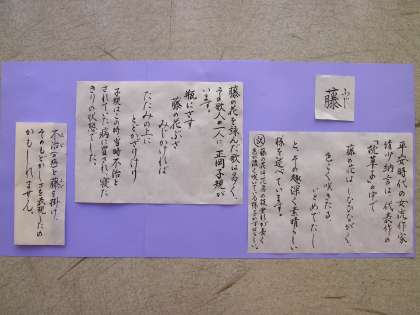 ふじ
藤
平安時代の女流作家
清少納言は、代表作の
枕草子の中で
藤の花は しなひながく、
色こく咲きたる
いとめでたし
と、その趣深く素晴らしい
様を述べています。
藤の花を詠んだ歌は多く、
その歌人の一人に正岡子規が
います。
瓶にさす
藤の花ぶさ
みじかければ
たたみの上に
とどかざりけり
子規はこの時、当時不治と
されていた病に冒され、寝た
きりの状態でした。
不治の恋と藤を掛け、
そのもどかしさを表現したの
かもしれません。